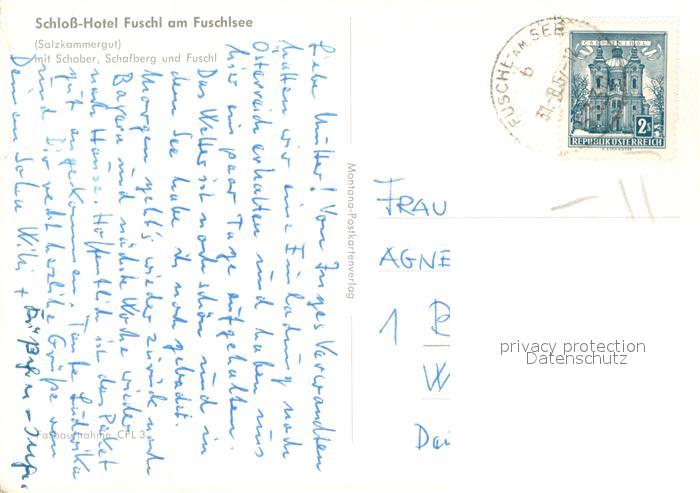 Schloß-Hotel Fuschl am Fuschlsee
(Salzkammergut)
mit Schober, Schafberg und Fuschl
Liebe Mutter! Von Inges Verwandten
hatten wir eine Einladung nach
Österreich erhalten und haben uns
hier ein paar Tage aufgehalten.
Das Wetter ist noch schön und in
dem See habe ich noch gebadet.
Morgen geht's wieder zurück nach
Bayern und nächste Woche wieder
nach Hause. Hoffentlich ist das Paket
gut angekommen. Tante Ludwika
und Dir recht herzliche Grüße von
Deinem Sohn Willi +
Farbaufnahme CFL 3
Montana-Postkartenverlag
FUSCHL AM SEE
b
31.-8.67-12
2S
REPUBLIK ÖSTERREICH
FRAU
AGNE
1
W
Dai
privacy protection
Datenschutz